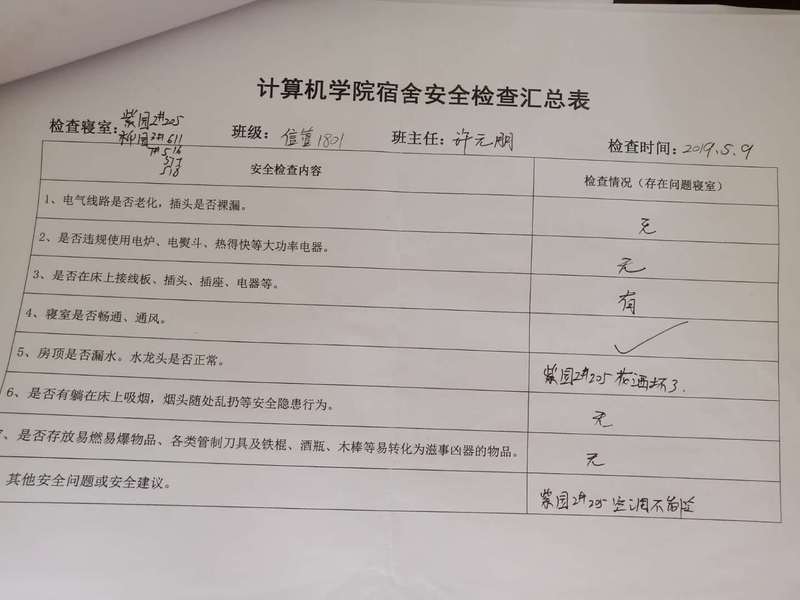 计算机学院宿舍安全检查汇总表
检查寝室: 紫园2#205
柳园2#611
7#516
517
518
班级: 信管1801 班主任: 许元朋 检查时间: 2019.5.9
安全检查内容 检查情况(存在问题寝室)
1、电气线路是否老化,插头是否裸漏。 无
2、是否违规使用电炉、电熨斗、热得快等大功率电器。 无
3、是否在床上接线板、插头、插座、电器等。 有
4、寝室是否畅通、通风。 ✓
5、房顶是否漏水。水龙头是否正常。 紫园2#205花洒坏了.
6、是否有躺在床上吸烟,烟头随处乱扔等安全隐患行为。 无
7、是否存放易燃易爆物品、各类管制刀具及铁棍、酒瓶、木棒等易转化为滋事凶器的物品。 无
其他安全问题或安全建议。 紫园2#205空调不制